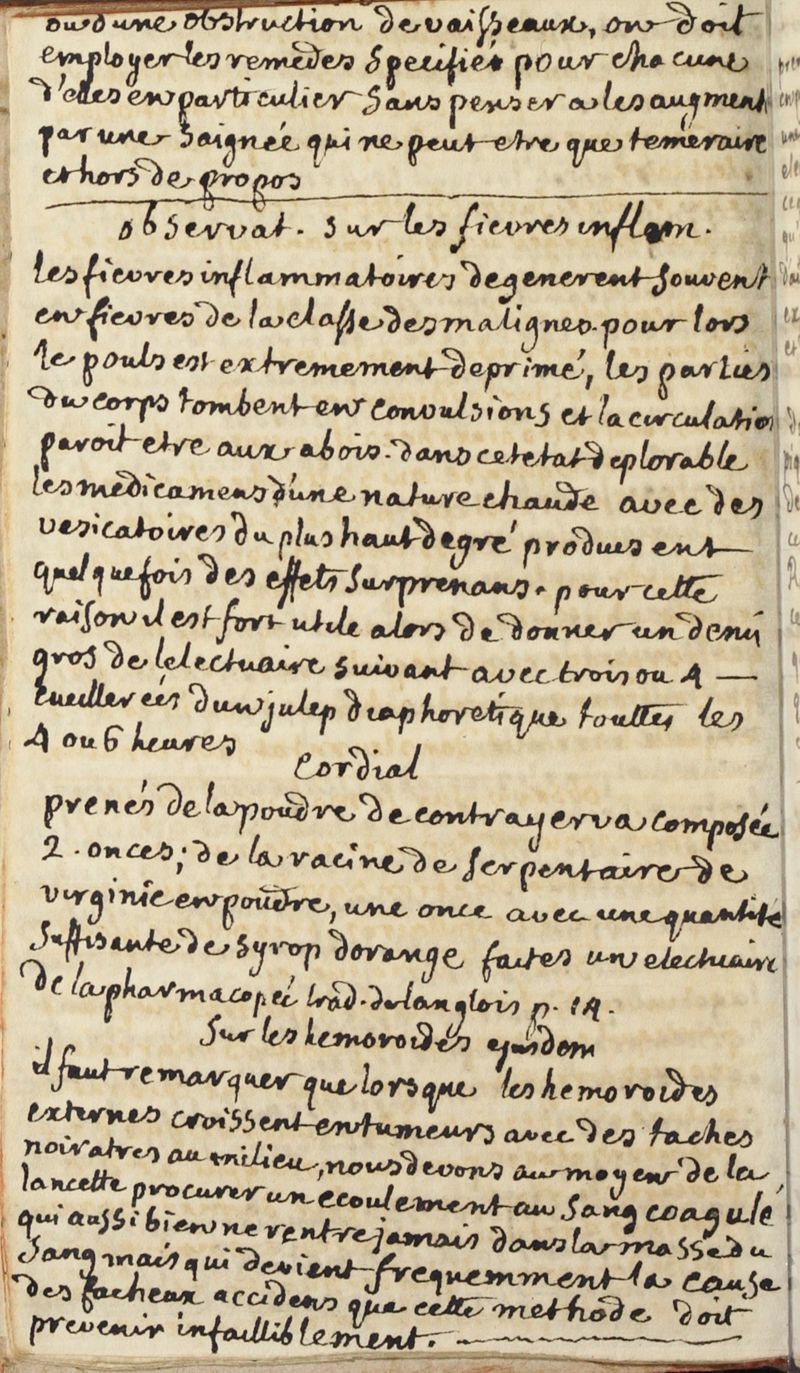 ou d'une obstruction de vaisseaux, on doit
employer les remedes specifiés pour chacune
d'elles en particulier sans penser a les augment
par une saignée qui ne peut etre que temeraire
et hors de propos
observat. sur les fievres inflam.
les fievres inflammatoires degenerent souvent
en fievres de la classe des malignes. pour lors
le pouls est extremement deprimé, les parties
du corps tombent en convulsions et la circulation
paroit etre aux abois. dans cet etat deplorable
les medicamens d'une nature chaude avec des
vesicatoires du plus haut degré produisent
quelquefois des effets surprenans. pour cette
raison il est fort utile alors de donner un demi
gros de lelectuaire suivant avec trois ou 4 —
cueillerées d'un julep diaphoretique touttes les
4 ou 6 heures
Cordial
prenés de la poudre de contrayerva composée
2. onces; de la racine de serpentaire de
virginie en poudre, une once avec une quantité
suffisante de syrop dorange faites un electuaire
de la pharmacopeé trad. de langlois p. 14.
Sur les hemoroides ejusdem
il faut remarquer que lorsque les hemoroides
externes croissent en tumeurs avec des taches
noiratres au milieu, nous devons au moyen de la
lancette procurer un ecoulement au sang coagulé
qui aussi bien ne rentre jamais dans la masse du
sang mais qui devient frequemment la cause
des facheux accidens que cette methode doit
prevenir infailliblement.